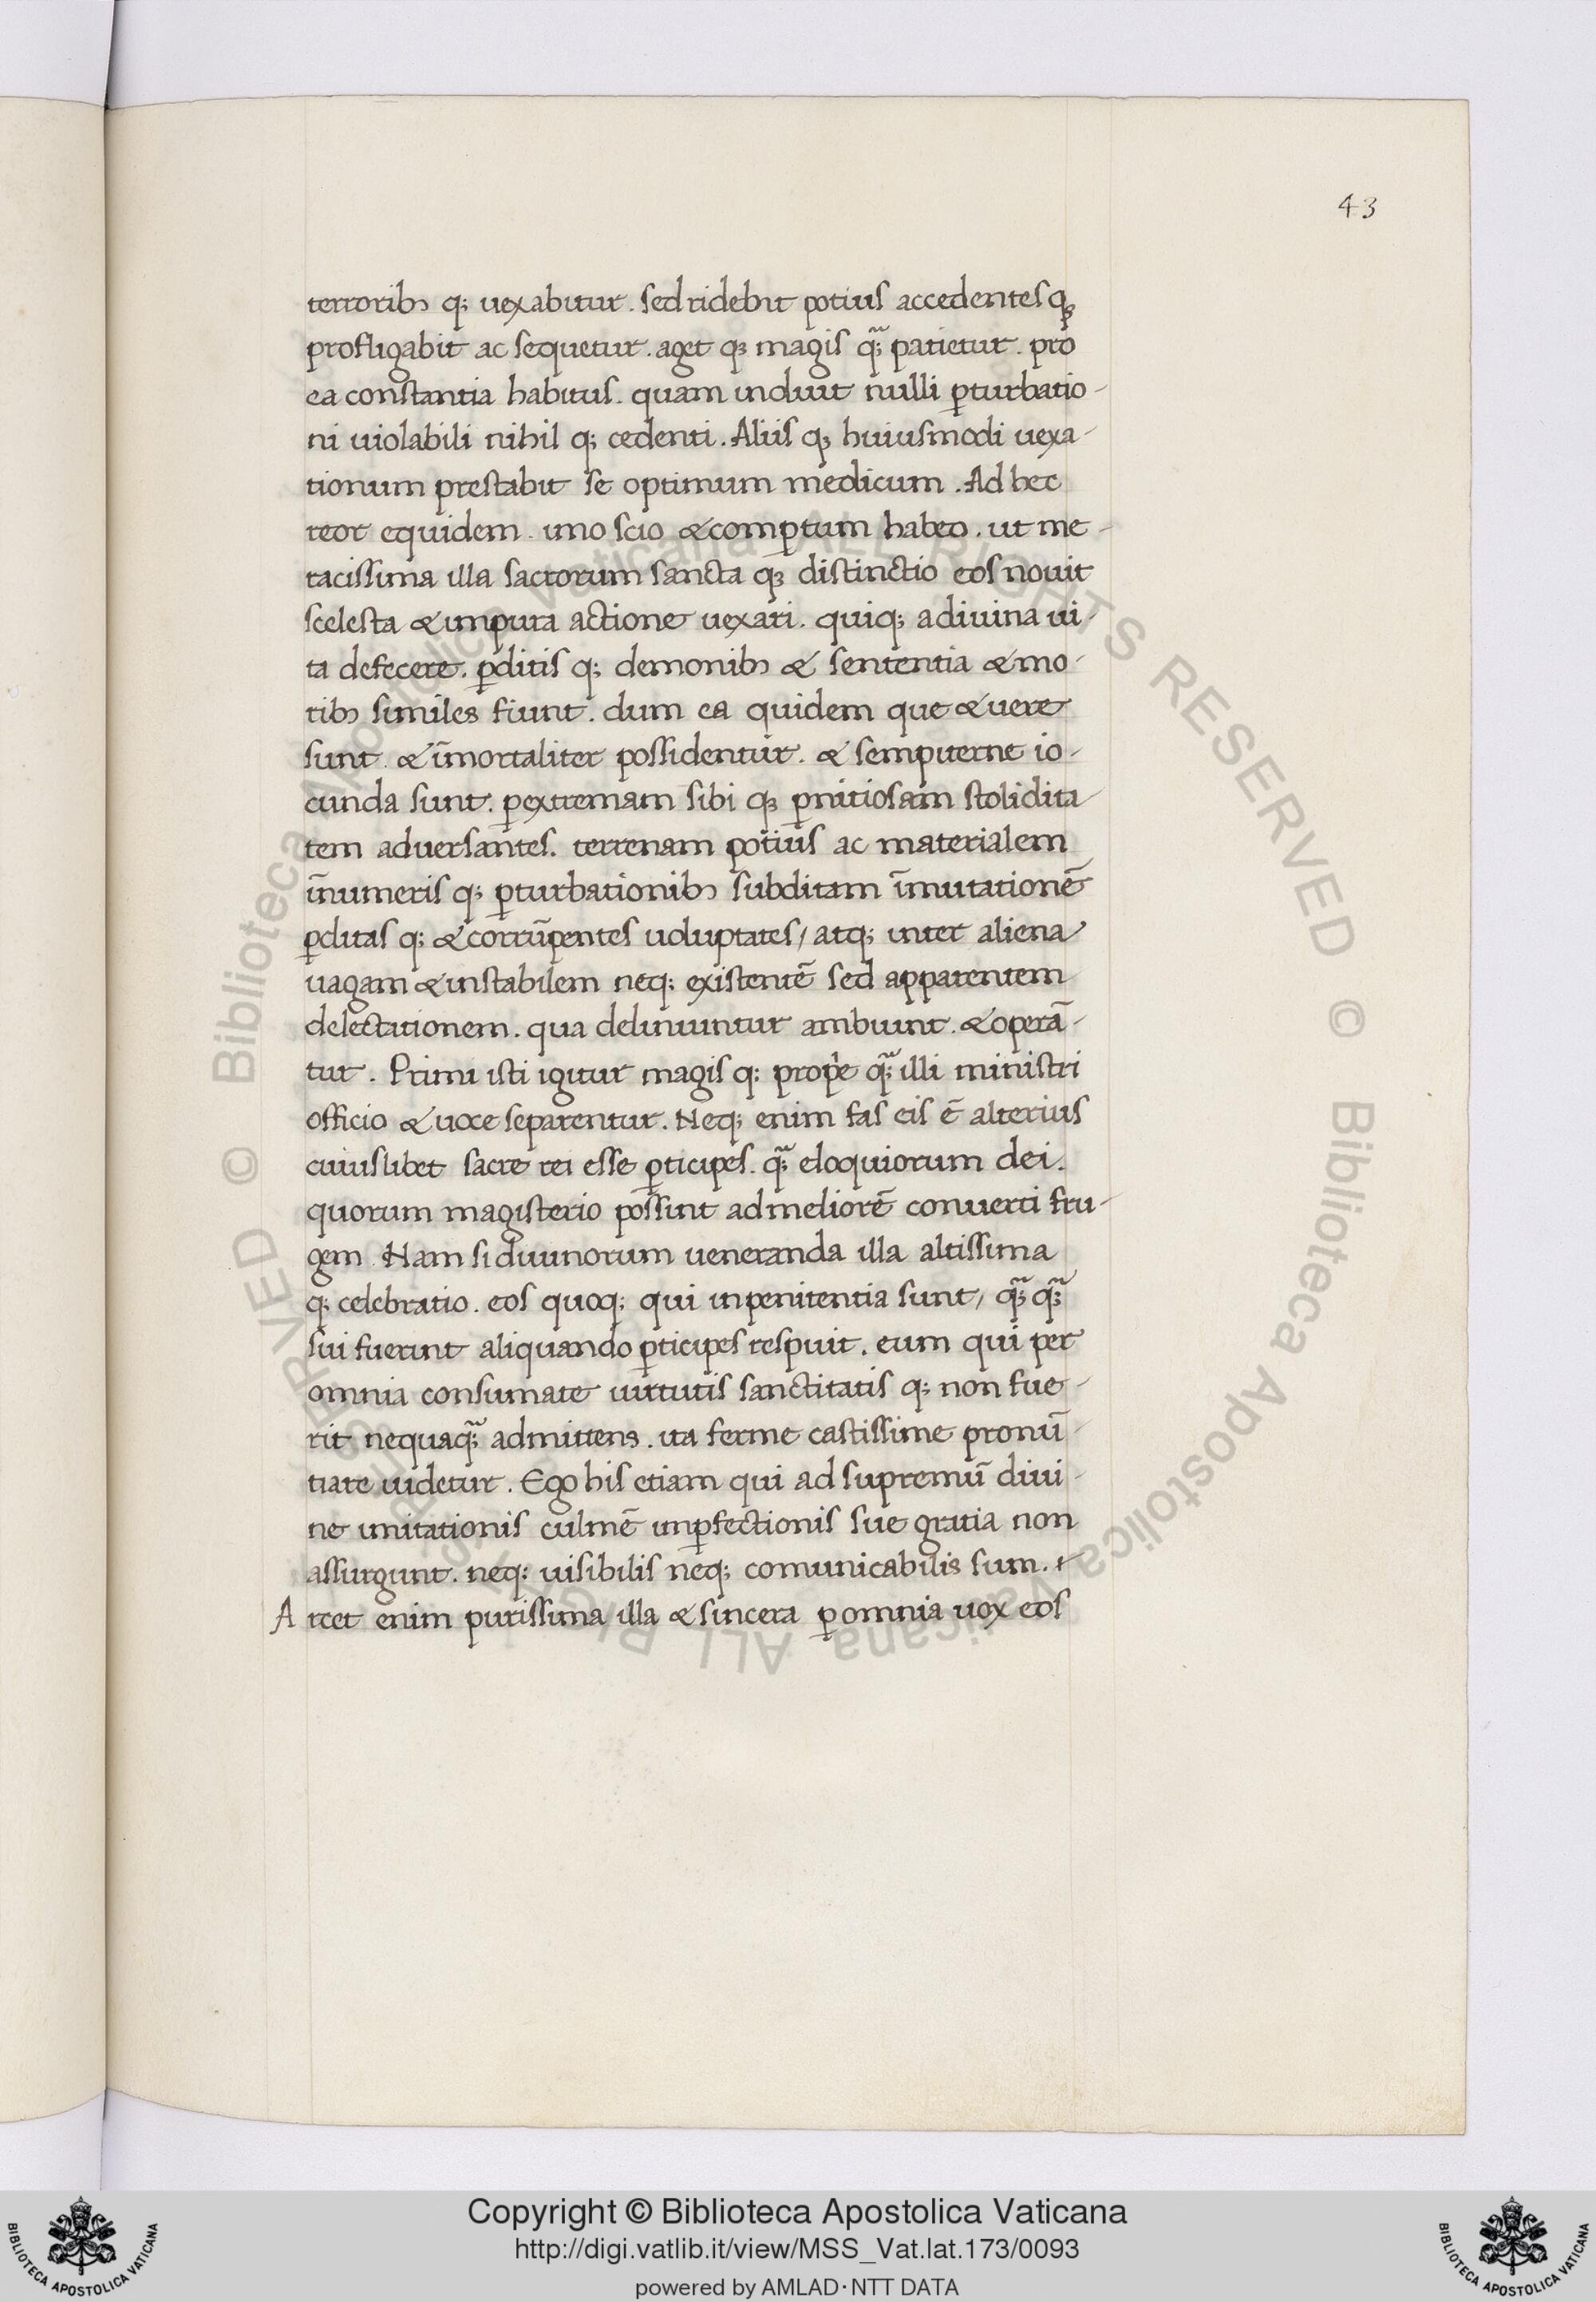 43
terroribꝫ q; uexabitur. sed ridebit potius accedentesqꝫ
profligabit ac sequetur. aget qꝫ magis q̃ꝫ patietur. pro
ea constantia habitus. quam induit nulli ꝑturbatio-
ni uiolabili nihil q; cedenti. Aliis qꝫ huiusmodi uexa-
tionum prestabit se optimum medicum. Ad hec
reor equidem. imo scio & comꝑtum habeo. ut me-
racissima illa sacrorum sancta qꝫ distinctio eos nouit
scelesta & impura actione uexari. quiq; a diuina ui-
ta defecere. ꝑditis q; demonibꝫ & sententia & mo-
ribꝫ similes fiunt. dum ea quidem que & uere
sunt. & ĩmortaliter possidentur. & sempiterne io-
cunda sunt. ꝑ extremam sibi qꝫ ꝑnitiosam stolidita-
tem aduersantes. terrenam potius ac materialem
ĩnumeris q; ꝑturbationibꝫ subditam ĩmutationẽ
ꝑditas q; & corrũpentes uoluptates/ atq; inter aliena
uagam & instabilem neq; existentẽ sed apparentem
delectationem. qua deliniuntur ambiunt. & operã-
tur. Primi isti igitur magis q; propꝛe q̃ꝫ illi ministri
officio & uoce separentur. Neq; enim fas eis ẽ alterius
cuiuslibet sacre rei esse ꝑticipes. q̃ꝫ eloquiorum dei.
quorum magisterio possint ad meliorẽ conuerti fru-
gem. Nam si diuinorum ueneranda illa altissima
q; celebratio. eos quoq; qui in penitentia sunt/ q̃ꝫ q̃ꝫ
sui fuerint aliquando ꝑticipes respuit. eum qui per
omnia consumate uirtutis sanctitatis q; non fue-
rit nequaq̃ꝫ admittens. ita ferme castissime pronũ-
tiare uidetur. Ego his etiam qui ad supremũ diui-
ne imitationis culmẽ imꝑfectionis sue gratia non
assurgunt. neq; uisibilis neq; comunicabilis sum.
Arcet enim purissima illa & sincera ꝑ omnia uox eos
© Biblioteca Apostolica Vaticana ALL RIGHTS RESERVED © Biblioteca Apostolica Vaticana ALL RIGHTS RESERVED
Copyright © Biblioteca Apostolica Vaticana
http://digi.vatlib.it/view/MSS_Vat.lat.173/0093
powered by AMLAD·NTT DATA
BIBLIOTECA APOSTOLICA VATICANA
BIBLIOTECA APOSTOLICA VATICANA